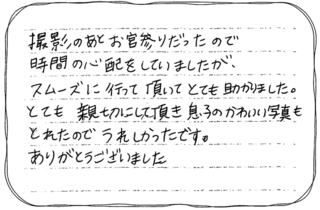 撮影のあとお宮参りだったので
時間の心配をしていましたが、
スムーズに行って頂いてとても助かりました。
とても親切にして頂き息子のかわいい写真も
とれたのでうれしかったです。
ありがとうございました